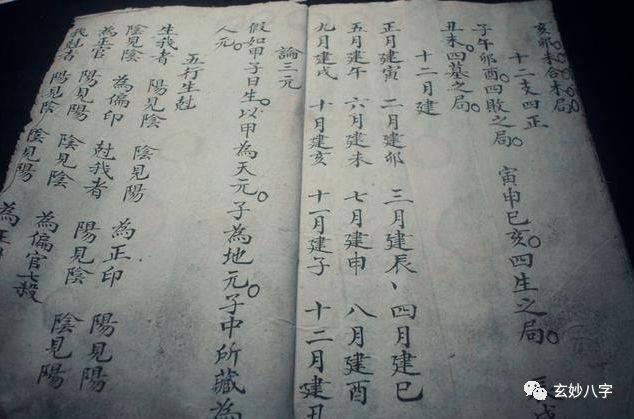 亥卯未合木局。
十二支四正
子午卯酉。四敗之局。 寅申巳亥。四生之局。
丑未。四墓之局。
十二月建
正月建寅 二月建卯 三月建辰、四月建巳
五月建午 六月建未 七月建申 八月建酉
九月建戌 十月建亥 十一月建子 十二月建丑
論三元
假如甲子日生。以甲為天元。子為地元。子中所藏為
人元。
五行生尅
生我者 陽見陰 陰見陽 為正印 陽見陽
陰見陰 為偏印 尅我者 陽見陰 陰見陽
為正官 陽見陽 陰見陰 為偏官七殺
我尅者 陽見陰 陰見陽 為正
玄妙八字